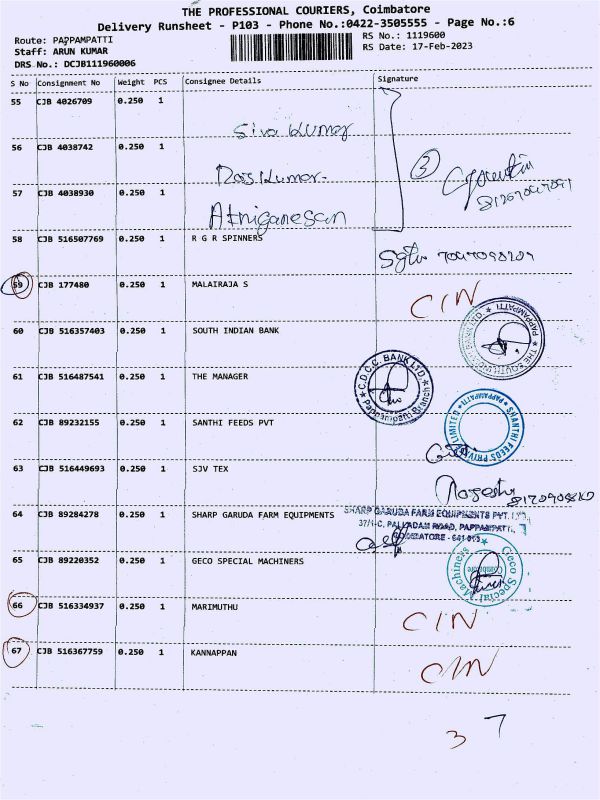 THE PROFESSIONAL COURIERS, Coimbatore
Delivery Runsheet - P103 - Phone No.:0422-3505555 - Page No.:6
Route: PAPPAMPATTI
Staff: ARUN KUMAR
DRS No.: DCJB111960006
RS No.: 1119600
RS Date: 17-Feb-2023
S No Consignment No Weight PCS Consignee Details Signature
55 CJB 4026709 0.250 1
Siva Kumar
56 CJB 4038742 0.250 1
Raj Kumar.
3
57 CJB 4038930 0.250 1
58 CJB 516507769 0.250 1 R G R SPINNERS
59 CJB 177480 0.250 1 MALAIRAJA S CIN
60 CJB 516357403 0.250 1 SOUTH INDIAN BANK
PAPPAMPATTI
61 CJB 516487541 0.250 1 THE MANAGER
C.D.C.C. BANK LTD.
Pappampatti Branch
62 CJB 89232155 0.250 1 SANTHI FEEDS PVT
SHANTHI FEEDS PRIVATE LIMITED * PAPPAMPATTI *
63 CJB 516449693 0.250 1 SJV TEX
64 CJB 89284278 0.250 1 SHARP GARUDA FARM EQUIPMENTS
SHARP GARUDA FARM EQUIPMENTS PVT. LTD.
37/1-C, PALLADAM ROAD, PAPPAMPATTI,
COIMBATORE
65 CJB 89220352 0.250 1 GECO SPECIAL MACHINERS
Geco Special Machiners
Coimbatore
66 CJB 516334937 0.250 1 MARIMUTHU CIN
67 CJB 516367759 0.250 1 KANNAPPAN CIN
3 7